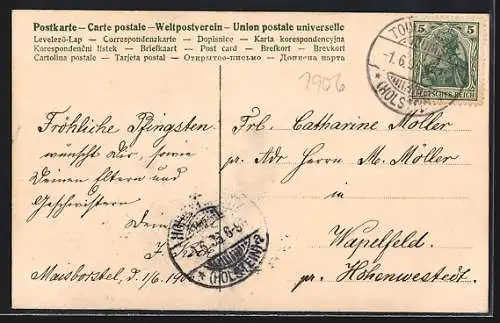 Postkarte – Carte postale – Weltpostverein – Union postale universelle
Levelező-Lap — Correspondenzkarte — Dopisnice — Karta korespondencyjna
Korespondenční lístek — Briefkaart — Post card — Brefkort — Brevkort
Cartolina postale — Tarjeta postal — Открытое-письмо — Дописна карта
1906
5 5
DEUTSCHES REICH
(HOLSTEIN)
Fröhliche Pfingsten
wünscht Dir, sowie
Deinen Eltern und
Geschwistern
Dein
Maisborstel, d. 1/6
Frl. Catharine Möller
pr. Adr Herrn M. Möller
in
Wapelfeld
pr. Hohenwestedt.
(HOLSTEIN)